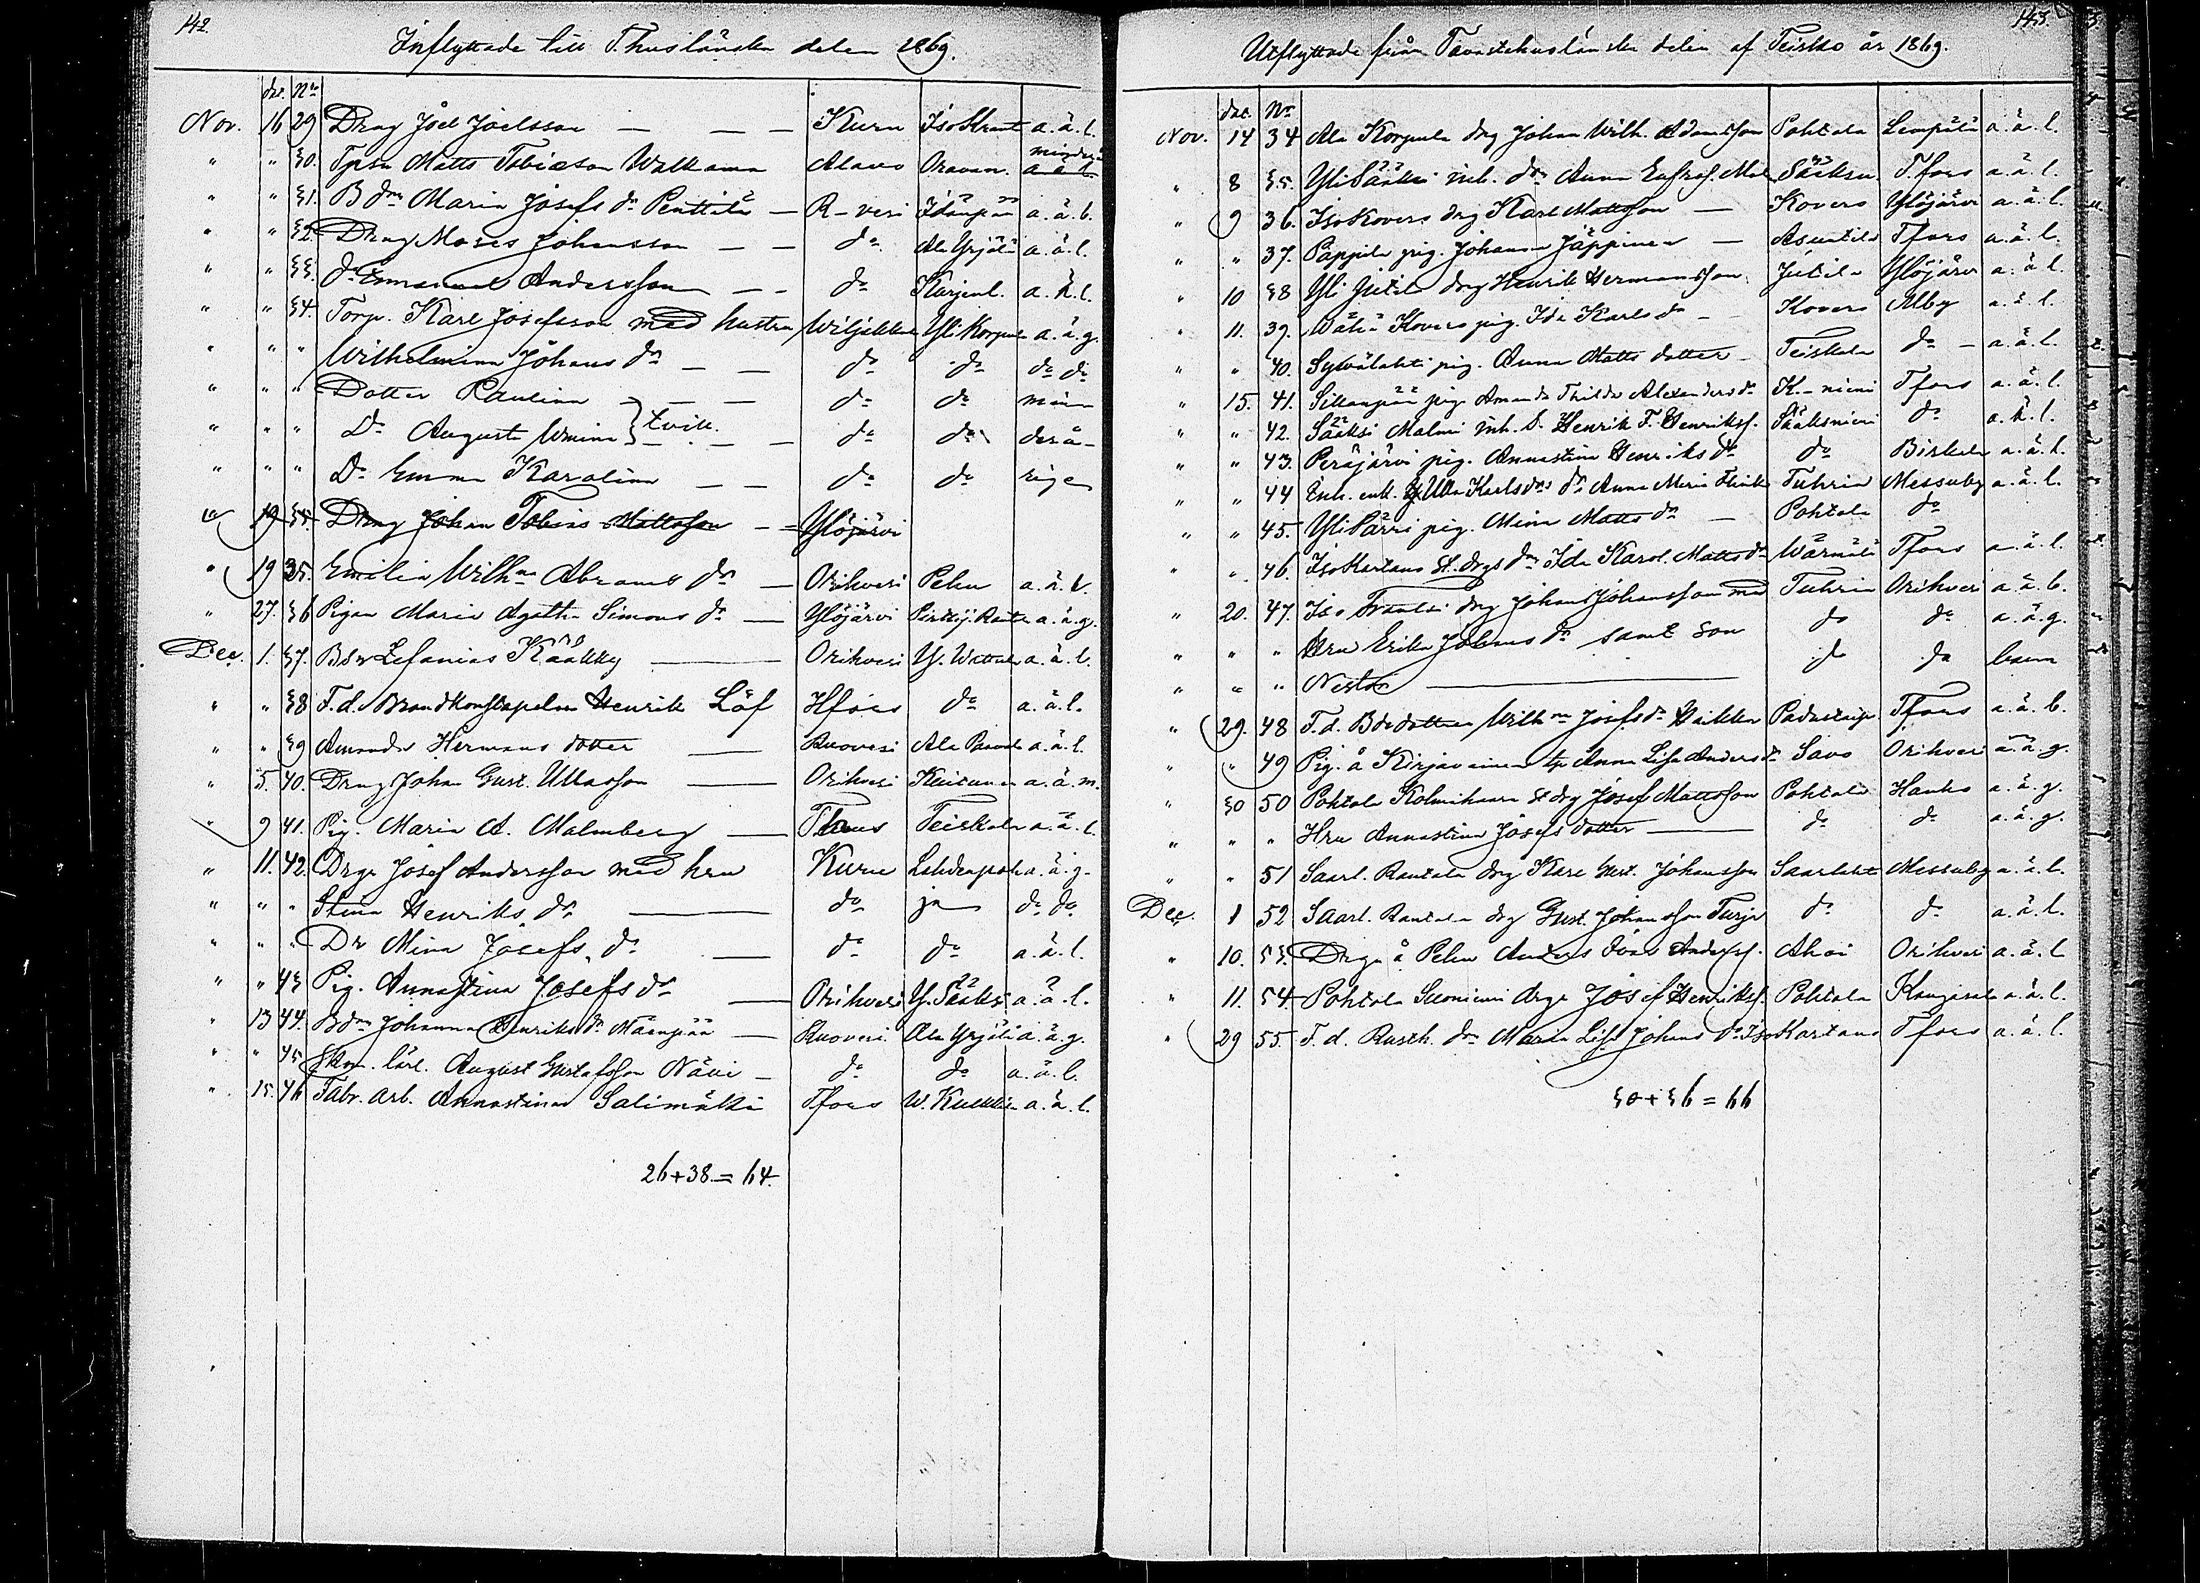 142.
Inflyttade till Thuslänska delen 1869.
dec. No
Nov. 16 29 Dräng Joel Joelsson — — — Kuru IsoKrant a.ä.l.
" " 30. Tpsn Matts Tobiasson Walkama Alavo Oravan. minderå
" " 31. Bdm Maria Josefs dr Penttilä — R-vesi Idänpää a.ä.b.
" " 32. Dräng Moses Johansson — — do Ala Yrjölä a.ä.l.
" " 33. do Emanuel Andersson — — do Karjul. a.ä.l.
" " 34. Torp. Karl Josefsson med hustru Wiljakkal Yli Korpul a.ä.g.
" " " Wilhelmina Johans dr — — do do do do
" " " Dotter Paulina — — — do do min
" " " Dr Augusta Wmina } tvill. — — do do derå-
" " " Dr Emma Karolina — — do do rige
" 19 35. Dräng Johan Tobias Mattsson — Ylöjärvi
" 19 35. Emilia Wilhna Abrams dr — Orihvesi Pehu a.ä.l.
" 27. 36 Pigan Maria Agatha Simons dr — Ylöjärvi Rauta a.ä.g.
Dec. 1. 37. Bdr Zefanias Kääkky — Orihvesi Y. Wattul a.ä.l.
" " 38 F.d. Brandkonstapeln Henrik Löf Hfors do a.ä.l.
" " 39 Amanda Hermans dotter — Ruovesi Ala Pavola a.ä.l.
" 5. 40. Dräng Johan Gust. Ullasson — Orihvesi Kaitane a.ä.m.
" 9 41. Pig. Maria A. Malmberg — Thus Teiskola a.ä.l.
" 11. 42. Drge Josef Andersson med hru Kuru Lehdenpoh a.ä.g.
" " " Stina Henriks dr — do ja do do
" " " Dr Mina Josefs dr — do do a.ä.l.
" " 43 Pig. Annastina Josefs dr — Orihvesi Y. Sääksi a.ä.l.
" 13 44. Bdm Johanna Henriks dr Mäenpää — Ruovesi. Ala Yrjölä a.ä.g.
" " 45 Skom. lärl. August Gustafsson Näsi — do do a.ä.l.
" 15. 46 Fabr. arb. Annastina Salimäki Tfors W. Kulkkila a.ä.l.
26+38=64.
143.
Utflyttade från Tavastehuslänska delen af Teisko år 1869.
dec. No
Nov. 14 34 Ala Korpula drg Johan Wilh. Adamsson Pohtola Lempälä a.ä.l.
" 8 35. Yli Sääksi inh. dr Anna Eufros. Mal Sääksn T.fors a.ä.l.
" 9 36. Iso Kovero drg Karl Mattsson — Kovero Ylöjärvi a.ä.l.
" " 37. Pappila pig. Johanna Jäppinen — Asuntila Tfors a.ä.l.
" 10 38 Yli Jutila drg Henrik Hermansson Jutila Ylöjärvi a.ä.l.
" 11. 39. Wähä Kovero pig. Ida Karls dr — Kovero Alby a.ä.l.
" " 40. Sywälahti pig. Anna Matts dotter — Teiskola do — a.ä.l.
" 15. 41. Sillanpää pig Amanda Thilda Alexanders dr K.-niemi Tfors a.ä.l.
" " 42. Sääksi Malmi inh. S. Henrik F. Henrikss. Sääksniemi do a.ä.l.
" " 43. Peräjärvi pig. Annastina Henriks dr do Birkala a.ä.l.
" " 44 Enk. Ulla Karls drs dr Anna Maria Henrik Tuhria Messuby a.ä.l.
" " 45. Yli Pärri pig. Mina Matts dr — Pohtola do
" " 46. Iso Kartano st. drgs dr Ida Karol. Matts dr Wärmälä Tfors a.ä.l.
" 20. 47. Iso drg Johan Johansson md Tuhria Orihvesi a.ä.b.
" " " Hru Erika Johans dr samt son do do a.ä.g.
" " " Nestor — do do barn
" 29. 48 F.d. Bdr dotter Wilhna Josefs dr Tfors a.ä.b.
" " 49 Pig. å Kirjavainen tp Anna Lisa Anders dr Savo Orihvesi a.ä.g.
" 30 50 Pohtola Kolmihaara st drg Josef Mattsson Pohtola Hauho a.ä.g.
" " " Hru Annastina Josefs dotter — do do a.ä.g.
" " 51 Saarl. Rantala drg Karl Gust. Johansson Saarlaht Messuby a.ä.l.
Dec. 1 52 Saarl. Rantala drg Gust. Johansson Turja do do a.ä.l.
" 10. 53. Drge å Pehu Anders Ivar Anderss. Ahoi Orihvesi a.ä.l
" 11. 54 Pohtola Suoniemi drge Josef Henrikss. Pohtola Kangasal a.ä.l.
" 29 55. F.d. Rusth. dr Maria Lisa Johans dr Iso Kartano Tfors a.ä.l.
30+36=66